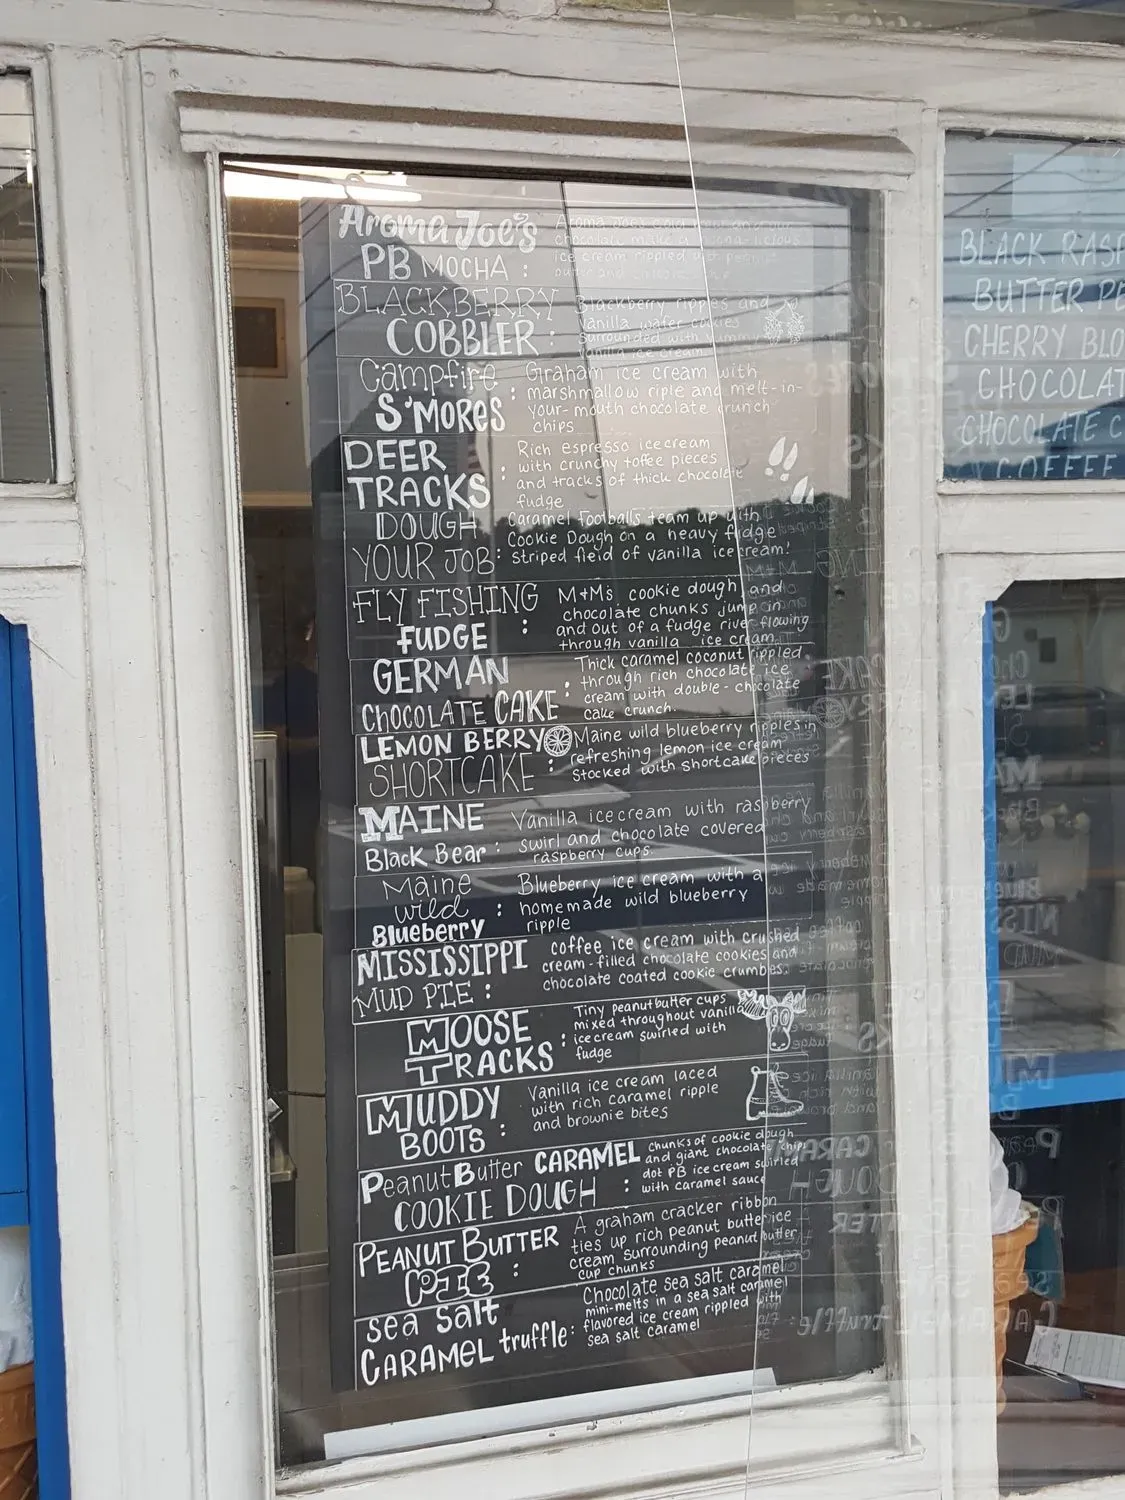 Aroma Joe's
PB MOCHA :
Aroma Joe's cold and our
chocolate make a licious
ice cream rippled with peanut
butter and
BLACKBERRY
COBBLER :
Blackberry ripples and
vanilla wafer cookies
surrounded with yummy
vanilla ice cream
Campfire
S'MORES :
Graham ice cream with
marshmallow riple and melt-in-
your-mouth chocolate crunch
chips
DEER
TRACKS :
Rich espresso ice cream
with crunchy toffee pieces
and tracks of thick chocolate
fudge
DOUGH
YOUR JOB :
Caramel Footballs team up with
Cookie Dough on a heavy fudge
striped field of vanilla ice cream!
FLY FISHING
FUDGE :
M+Ms, cookie dough and
chocolate chunks jump in
and out of a fudge river flowing
through vanilla ice cream
GERMAN
CHOCOLATE CAKE :
Thick caramel coconut rippled
through rich chocolate ice
cream with double-chocolate
cake crunch.
LEMON BERRY
SHORTCAKE :
Maine wild blueberry ripples in
refreshing lemon ice cream
stocked with shortcake pieces
MAINE
Black Bear :
Vanilla ice cream with raspberry
swirl and chocolate covered
raspberry cups.
Maine
wild
Blueberry :
Blueberry ice cream with a
homemade wild blueberry
ripple
MISSISSIPPI
MUD PIE :
coffee ice cream with crushed
cream-filled chocolate cookies and
chocolate coated cookie crumbles.
MOOSE
TRACKS :
Tiny peanut butter cups
mixed throughout vanilla
ice cream swirled with
fudge
MUDDY
BOOTS :
Vanilla ice cream laced
with rich caramel ripple
and brownie bites
Peanut Butter CARAMEL
COOKIE DOUGH :
chunks of cookie dough
and giant chocolate chips
dot PB ice cream swirled
with caramel sauce
PEANUT BUTTER
PIE :
A graham cracker ribbon
ties up rich peanut butter ice
cream surrounding peanut butter
cup chunks
sea salt
CARAMEL truffle:
Chocolate sea salt caramel
mini-melts in a sea salt caramel
flavored ice cream rippled with
sea salt caramel
BLACK RASP
BUTTER PE
CHERRY BLO
CHOCOLAT
CHOCOLATE C
COFFEE